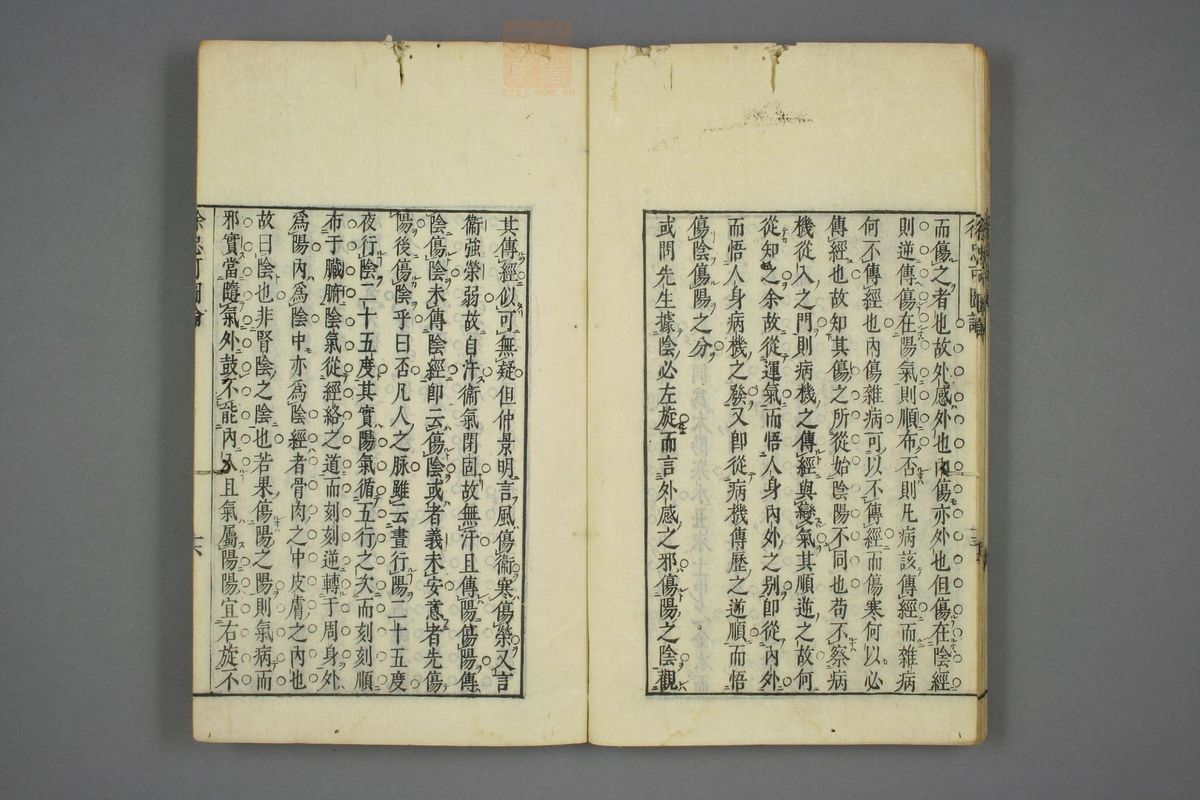 而傷之者也故外感外也內傷亦外也但傷在陰經
則逆傳傷在陽氣則順布否則凡病該傳經而雜病
何不傳經也內傷雜病可以不傳經而傷寒何以必
傳經也故知其傷之所從始陰陽不同也苟不察病
機從入之門則病機之傳經與變氣其順逆之故何
從知之余故從運氣而悟人身內外之別卽從內外
而悟人身病機之發又卽從病機傳歷之逆順而悟
傷陰傷陽之分
或問先生據陰必左旋而言外感之邪傷陽之陰觀
其傳經似可無疑但仲景明言風傷衞寒傷榮又言
衞強榮弱故自汗衞氣閉固故無汗且傳陽傷陽傳
陰傷陰未傳陰經卽云傷陰或者義未安意者先傷
陽後傷陰乎曰否凡人之脉雖云晝行陽二十五度
夜行陰二十五度其實陽氣循五行之次而刻刻順
布于臟腑陰氣從經絡之道而刻刻逆轉于周身外
爲陽內爲陰中亦爲陰經者骨肉之中皮膚之內也
故曰陰也非腎陰之陰也若果傷陽之陽則氣病而
邪實當隨氣外鼓不能內入且氣屬陽陽宜右旋不